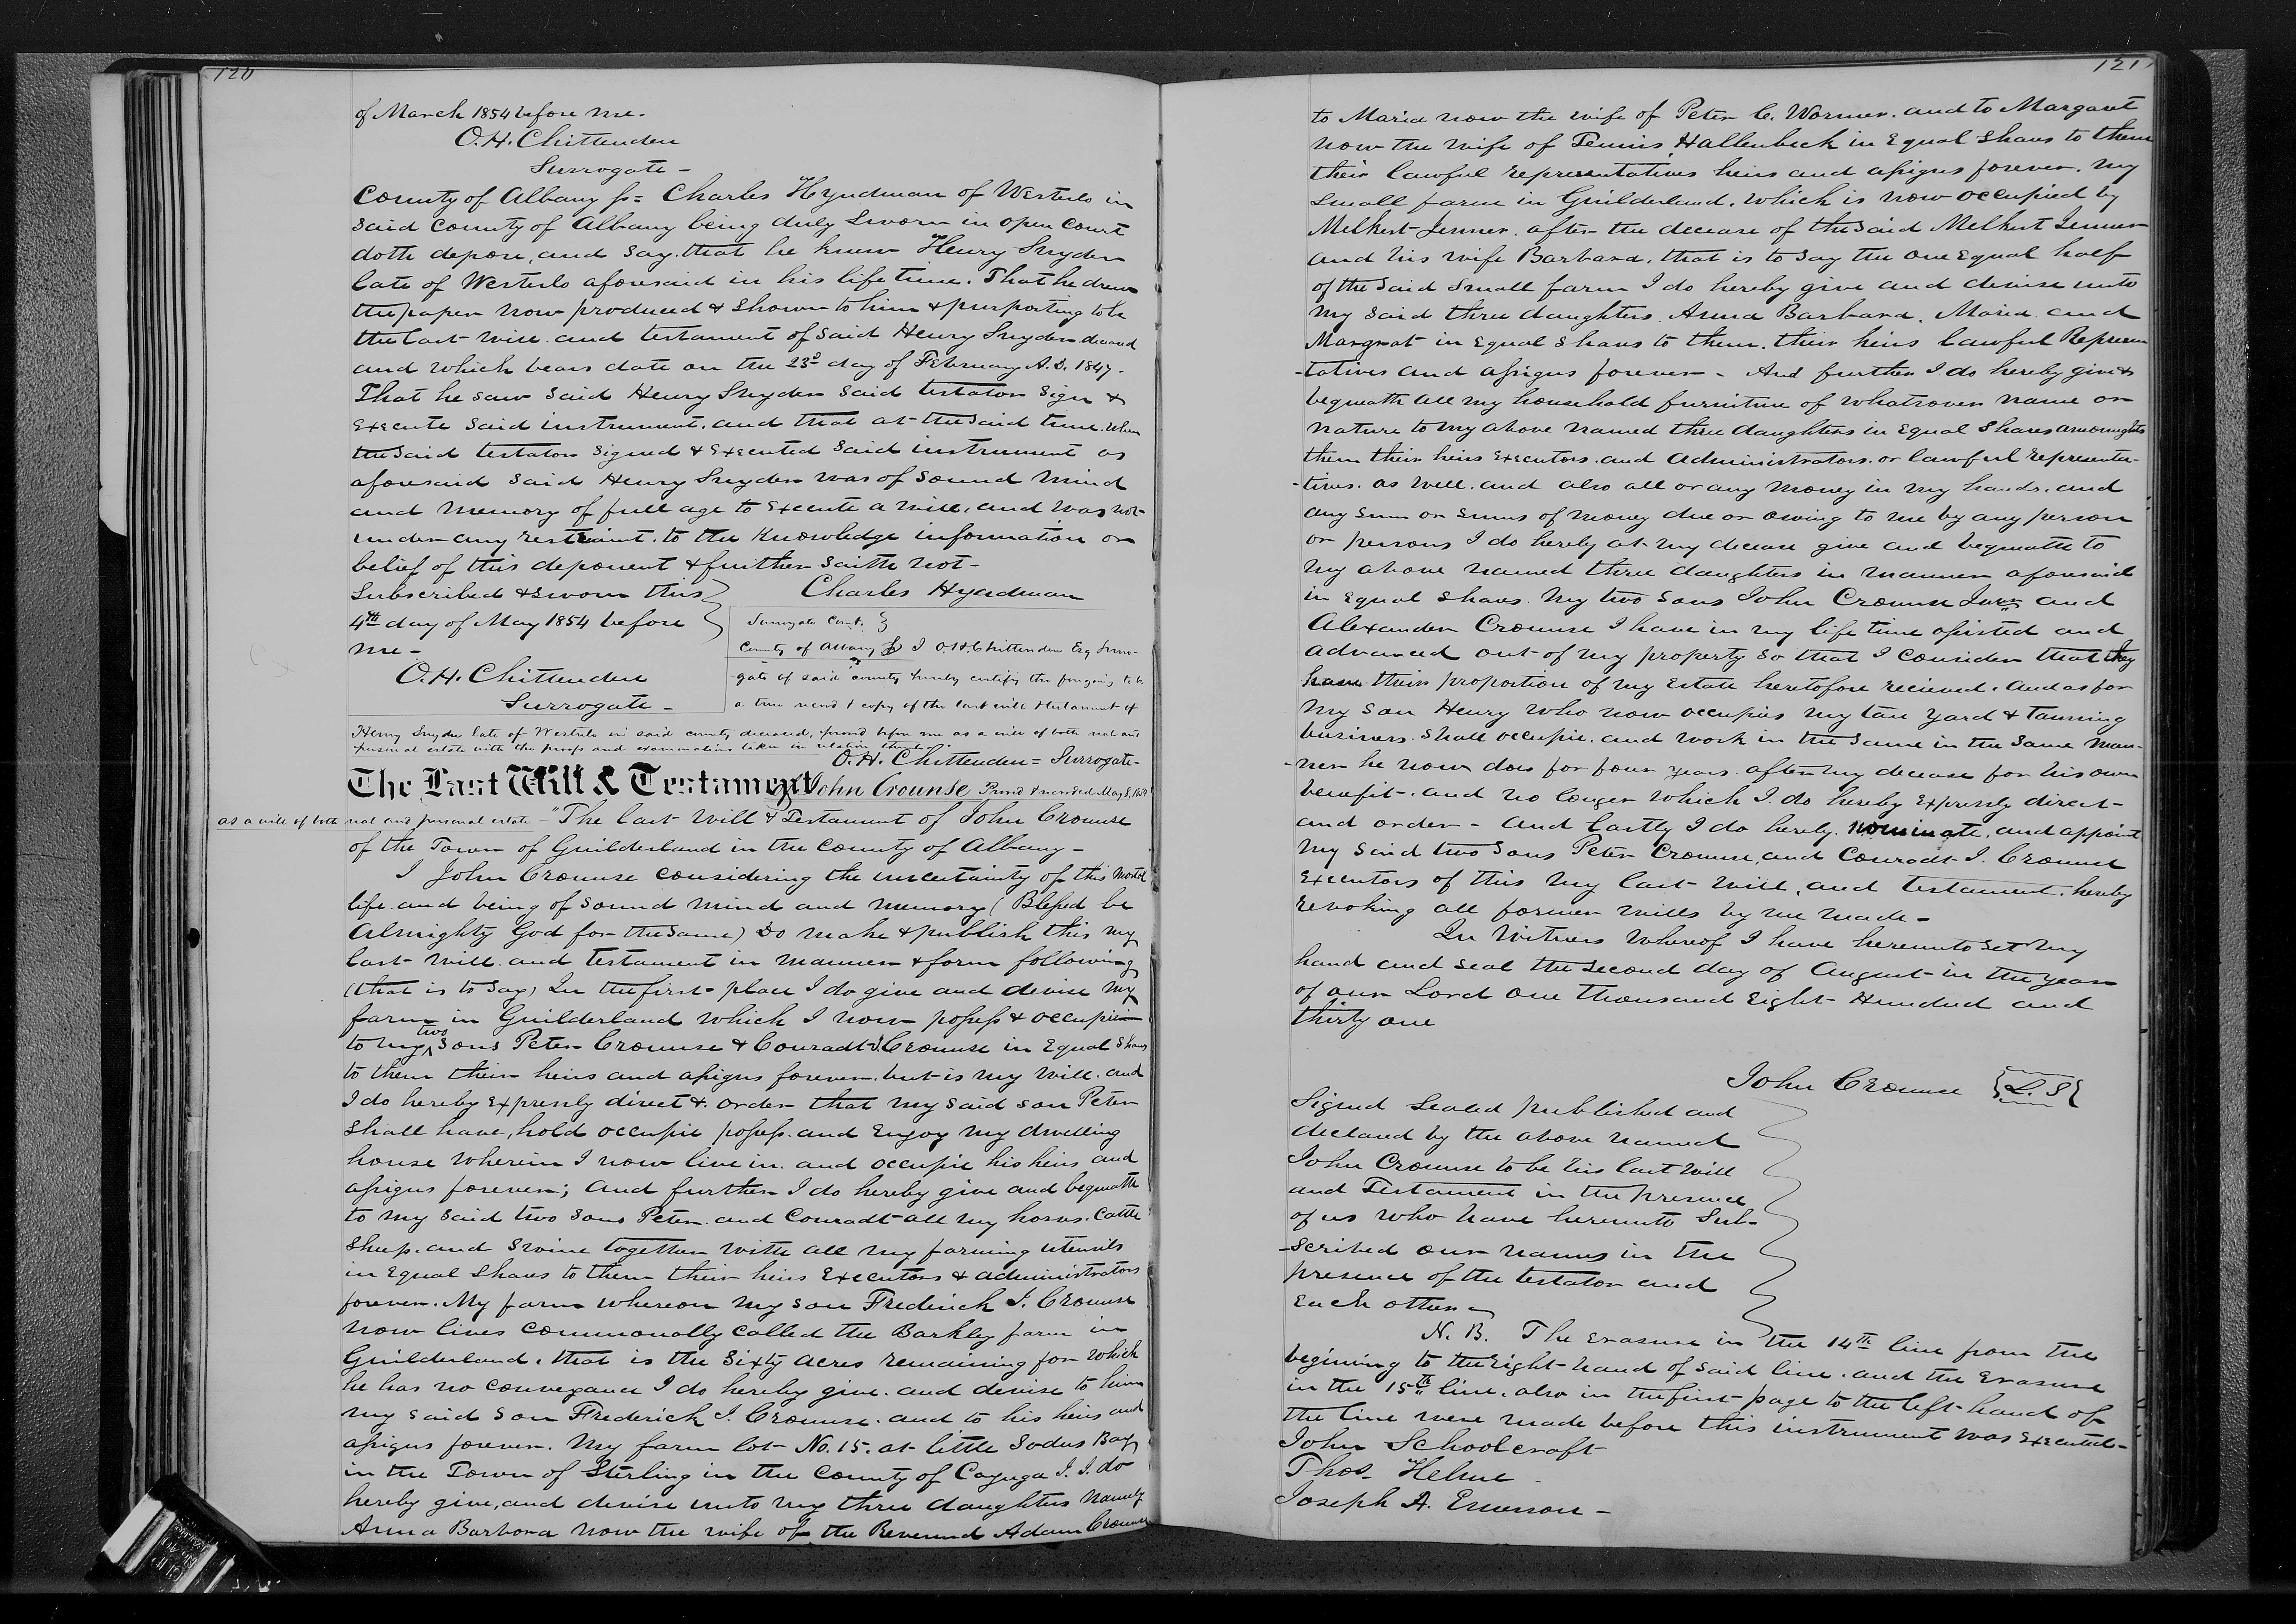 120
of March 1854 before me.
O. H. Chittenden
Surrogate -
County of Albany ss= Charles Hyndman of Westerlo in
said County of Albany being duly Sworn in open Court
doth depose, and say. that he knew Henry Snyder
late of Westerlo aforesaid in his life time. That he drew
the paper now produced & shown to him & purporting to be
the last will and testament of said Henry Snyder deceased
and which bears date on the 23d day of February A.D. 1847.
That he saw said Henry Snyder said testator sign &
Execute said instrument. and that at the said time. when
the said testator signed & Executed said instrument as
aforesaid said Henry Snyder was of sound mind
and memory of full age to Execute a will, and was not
under any restraint. to the knowledge information or
belief of this deponent & further saith not-
Subscribed & sworn this Charles Hyndman
4th day of May 1854 before
me -
O. H. Chittenden
Surrogate -
Surrogate Court.
County of Albany ss I O. H. Chittenden Esq Surro-
gate of said county hereby certify the foregoing to be
a true record & copy of the last will & testament of
Henry Snyder late of Westerlo in said county deceased, proved before me as a will of both real and
personal estate with the proofs and examinations taken in relation thereto.
O. H. Chittenden = Surrogate-
The Last Will & Testament of John Crounse Proved & recorded May 8. 1854
as a will of both real and personal estate - "The last Will & Testament of John Crounse
of the Town of Guilderland in the County of Albany -
I John Crounse considering the uncertainty of this mortal
life. and being of sound mind and memory (Blessed be
Almighty God for the same) Do make & publish this my
last will. and testament in manner & form following
(that is to say) In the first place I do give and devise my
farm in Guilderland which I now possess & occupie
to my two sons Peter Crounse & Conradt J. Crounse in Equal shares
to them their heirs and assigns forever. but is my will. and
I do hereby Expressly direct & order that my said son Peter
shall have, hold occupie possess. and Enjoy my dwelling
house wherein I now live in. and occupie his heirs and
assigns forever; And further I do hereby give and bequeath
to my said two sons Peter. and Conradt all my horses. Cattle
sheep. and swine together with all my farming utensils
in Equal shares to them their heirs Executors & administrators
forever. My farm whereon my son Frederick J. Crounse
now lives commonally called the Barkley farm in
Guilderland. that is the Sixty acres remaining for which
he has no conveyance I do hereby give. and devise to him
my said son Frederick J. Crounse. and to his heirs and
assigns forever. My farm lot No. 15. at little Sodus Bay
in the Town of Sterling in the County of Cayuga I. I. do
hereby give, and devise unto my three daughters Namely
Anna Barbara now the wife of the Reverend Adam Crounse
121
to Maria now the wife of Peter C. Wormer. and to Margaret
now the wife of Teunis Hallenbeck in Equal Shares to them
their lawful representatives heirs and assigns forever. My
small farm in Guilderland. which is now occupied by
Melkert Jenner. after the decease of the said Melkert Jenner
and his wife Barbara, that is to say the one Equal half
of the said small farm I do hereby give and devise unto
my said three daughters. Anna Barbara. Maria and
Margrat in Equal shares to them. their heirs lawful Represen
-tatives and assigns forever - And further I do hereby give &
bequeath all my household furniture of whatsoever name or
nature to my above named three daughters in Equal shares amoungsts
them their heirs Executors. and administrators. or lawful representa-
-tives. as well. and also all or any money in my hands. and
any sum or sums of money due or owing to me by any person
or persons I do hereby at my decease give and bequeath to
my above named three daughters in manner aforesaid
in Equal shares. My two sons John Crounse Junr. and
Alexander Crounse I have in my life time assisted and
advanced out of my property so that I consider that they
have their proportion of my Estate heretofore recieved. and as for
my son Henry who now occupies my tan yard & Tanning
business. shall occupie. and work in the same in the same man-
-ner he now does for four years. after my decease for his own
benefit. and no longer which I do hereby Expressly direct
and order - And lastly I do hereby. nominate, and appoint
my said two sons Peter Crounse, and Conradt J. Crounse
Executors of this my last Will, and testament. hereby
revoking all former wills by me made -
In Witness Whereof I have hereunto set my
hand and seal the second day of August in the year
of our Lord one thousand Eight Hundred and
thirty one
John Crounse L. S
Signed Sealed published and
declared by the above named
John Crounse to be his last Will
and Testament in the presence
of us who have hereunto Sub-
-scribed our names in the
presence of the testator and
Each other -
N. B. The Erasure in the 14th line from the
begining to the right hand of said line. and the Erasure
in the 15th line. also in the first page to the left hand of
the line were made before this instrument was Executed-
John Schoolcraft
Thos. Helme
Joseph A. Emerson -